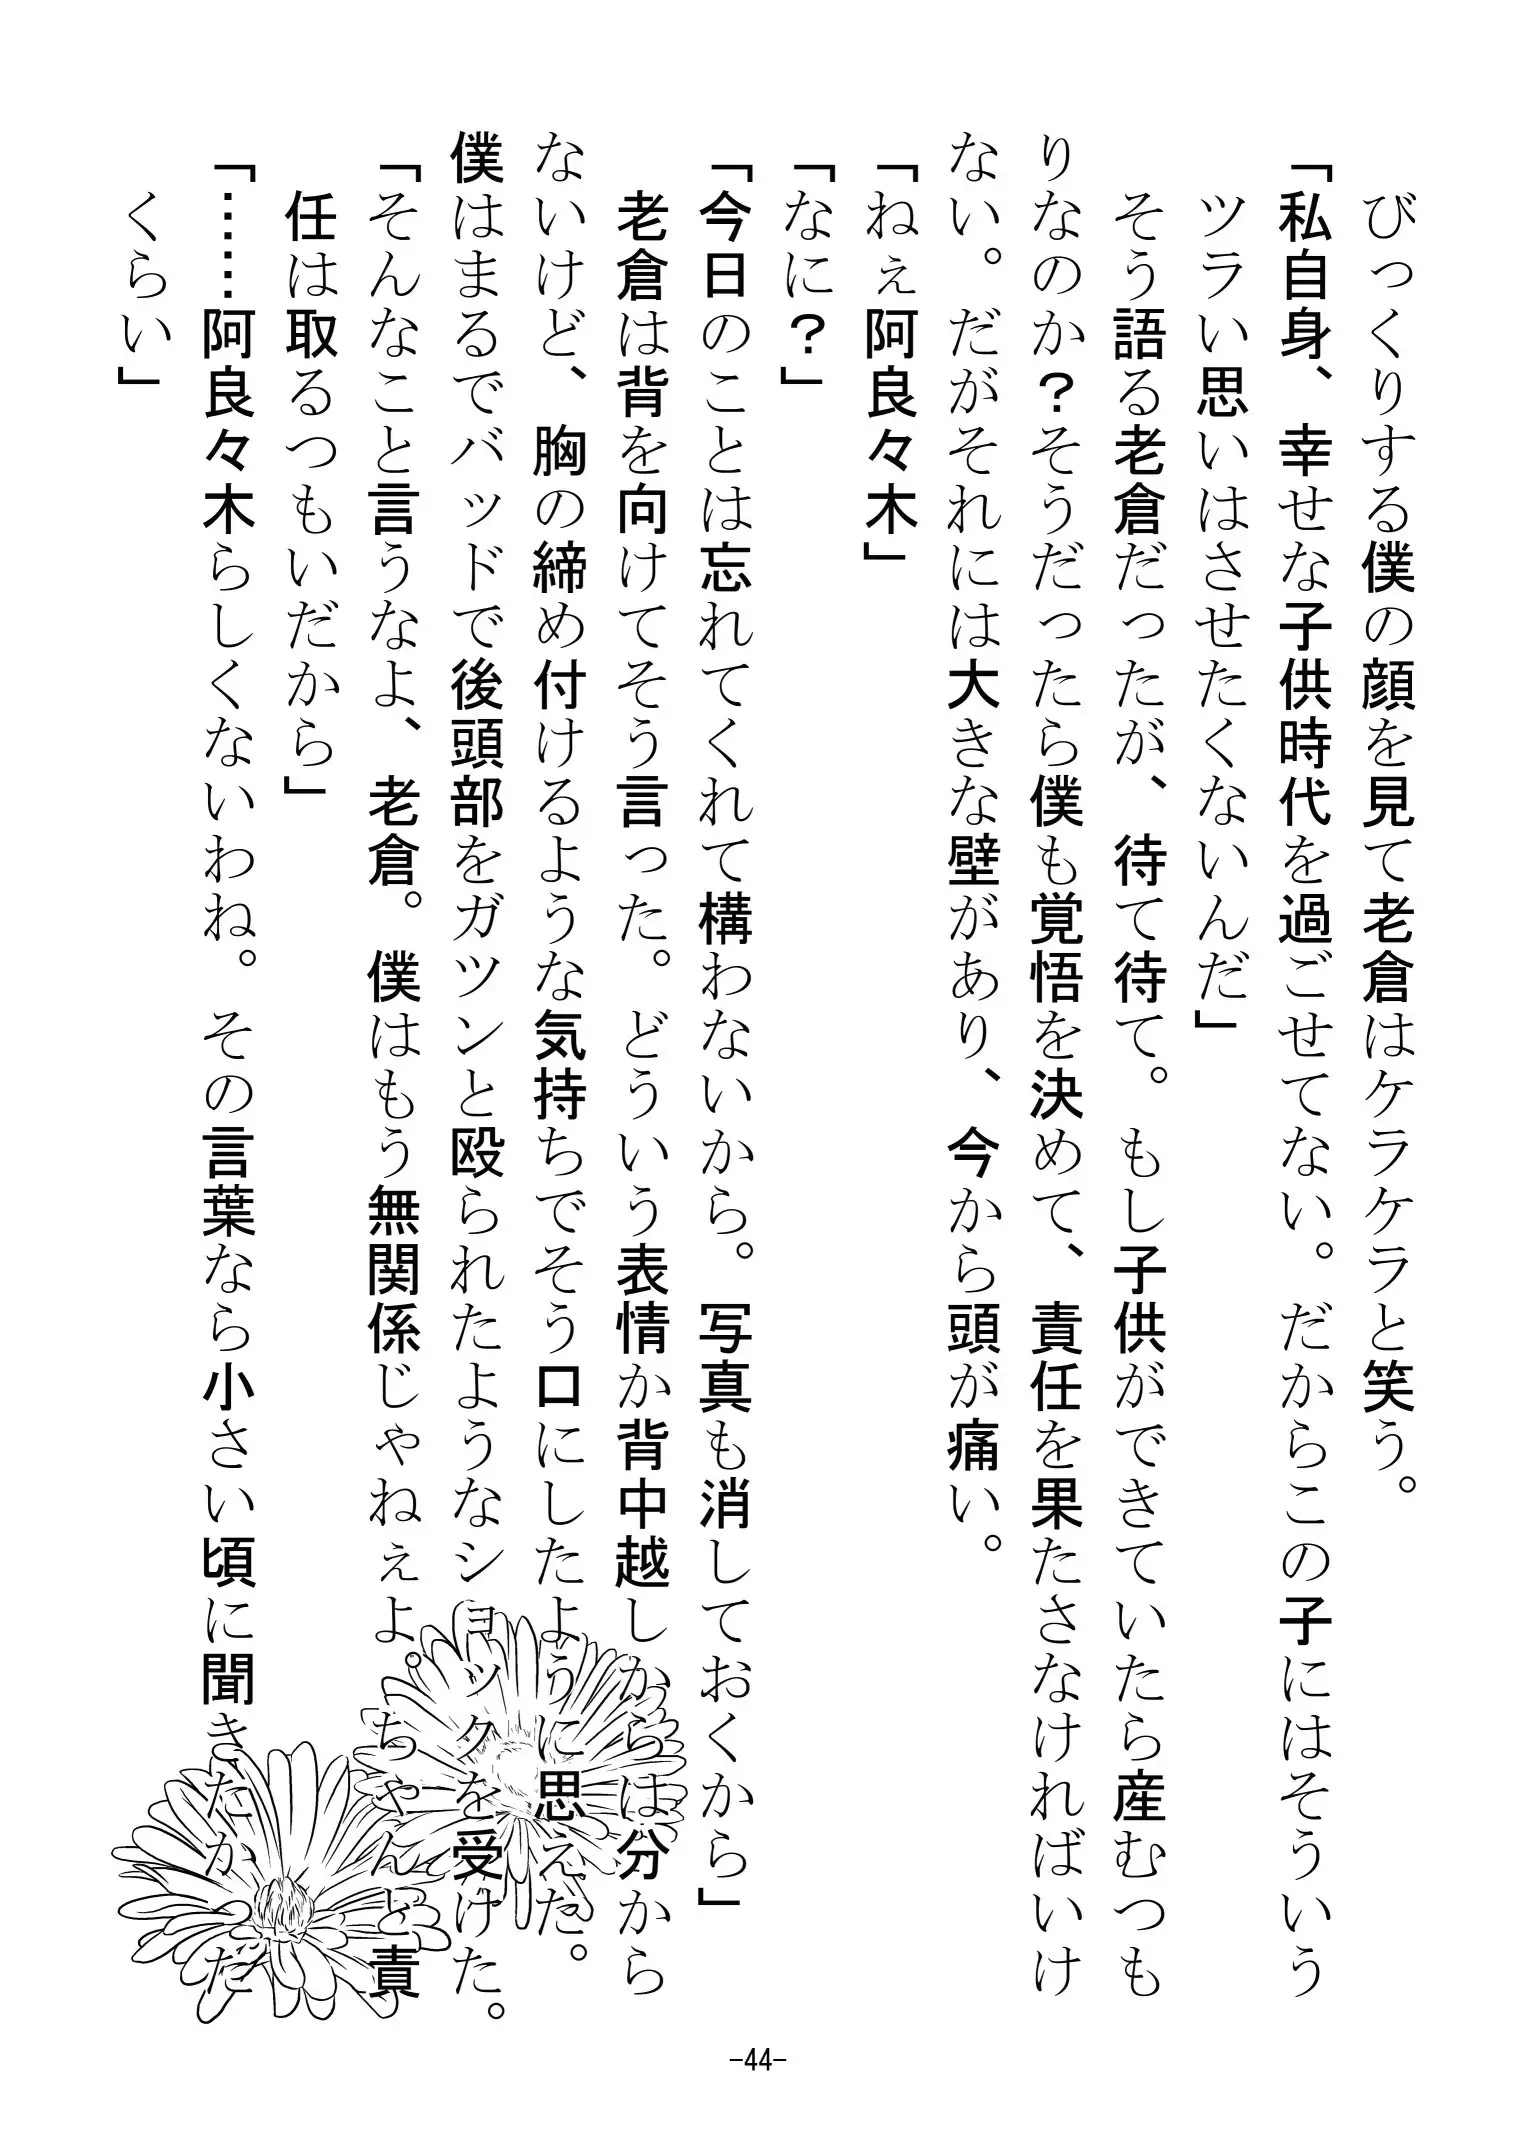 びっくりする僕の顔を見て老倉はケラケラと笑う。
「私自身、幸せな子供時代を過ごせてない。だからこの子にはそういう
ツラい思いはさせたくないんだ」
そう語る老倉だったが、待て待て。もし子供ができていたら産むつも
りなのか？そうだったら僕も覚悟を決めて、責任を果たさなければいけ
ない。だがそれには大きな壁があり、今から頭が痛い。
「ねぇ阿良々木」
「なに？」
「今日のことは忘れてくれて構わないから。写真も消しておくから」
老倉は背を向けてそう言った。どういう表情か背中越しからは分から
ないけど、胸の締め付けるような気持ちでそう口にしたように思えた。
僕はまるでバッドで後頭部をガツンと殴られたようなショックを受けた。
「そんなこと言うなよ、老倉。僕はもう無関係じゃねぇよ。ちゃんと責
任は取るつもいだから」
「……阿良々木らしくないわね。その言葉なら小さい頃に聞きたかった
くらい」
-44-